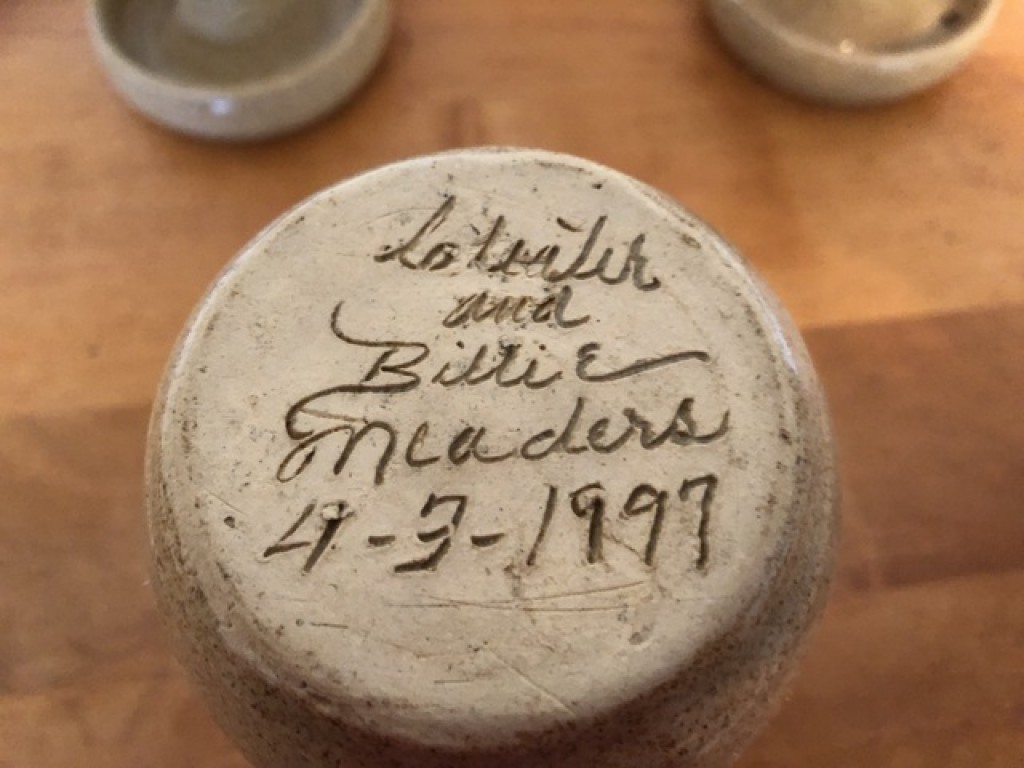 Cleater
and
Billie
Meaders
4-3-1997